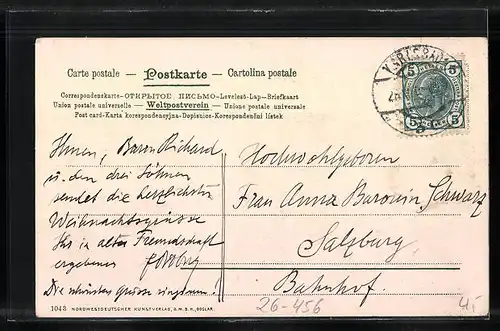 Carte postale — Postkarte — Cartolina postale
Correspondenzkarte-ОТКРЫТОЕ ПИСЬМО-Levelezö-Lap-Briefkaart
Union postale universelle — Weltpostverein — Unione postale universale
Post card-Karta korespondencyjna-Dopisnice-Korespondenční lístek
KARLSBAD
5 5
5 5
Ihnen, Baron Richard
u. den drei Söhnen
sendet die herzlichsten
Weihnachtsgrüsse
Ihr in alter Freundschaft
ergebener
Die schönsten Grüsse
Hochwohlgeboren
Frau Anna Baronin Schwarz
Salzburg
Bahnhof.
26-456
4,-
1043 NORDWESTDEUTSCHER KUNSTVERLAG, G.M.B.H., GOSLAR.